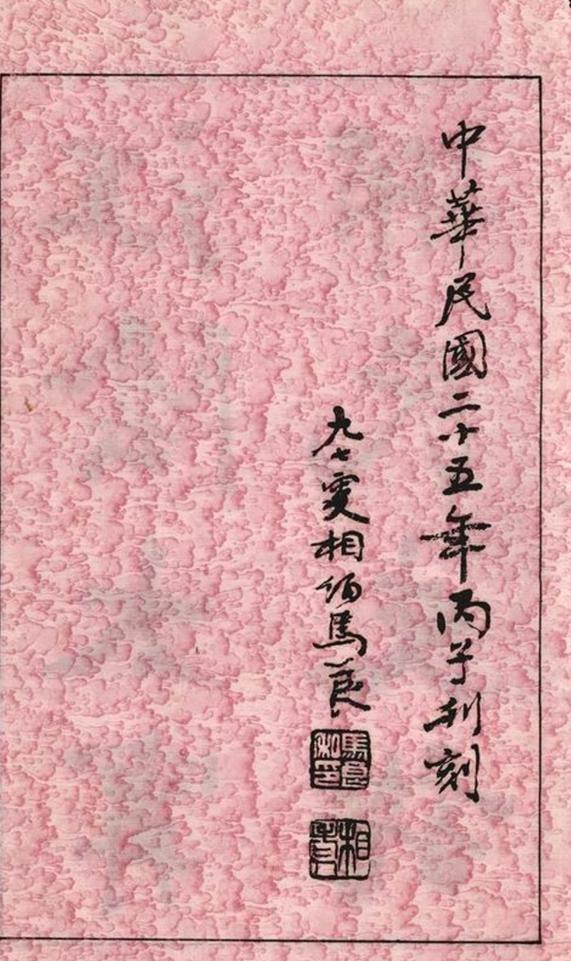 中華民國二十五年丙子刊刻
九七叟相伯馬良
馬良私印